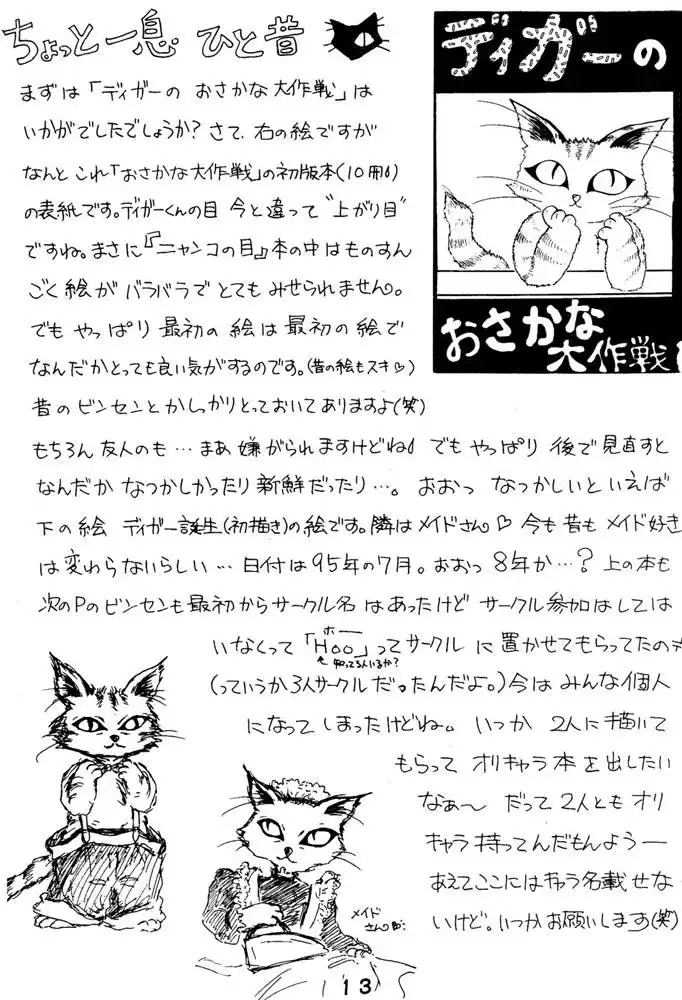 ちょっと一息 ひと昔
ディガーの
おさかな
大作戦
まずは「ディガーの おさかな大作戦」は
いかがでしたでしょうか？さて、右の絵ですが
なんと これ「おさかな大作戦」の初版本(10冊)
の表紙です。ディガーくんの目 今と違って“上がり目”
ですね。まさに『ニャンコの目』本の中はものすん
ごく絵が バラバラで とても みせられません。
でも やっぱり 最初の 絵は 最初の 絵で
なんだかとっても良い気がするのです。(昔の絵もスキ♡)
昔のビンセンとかしっかりとっておいてありますよ(笑)
もちろん 友人のも…まあ嫌がられますけどね でも やっぱり 後で見直すと
なんだか なつかしかったり 新鮮だったり…。おおっ なつかしいといえば
下の絵 ディガー誕生(初描き)の絵です。隣はメイドさん♡ 今も昔もメイド好き
は変わらないらしい… 日付は95年の7月。おおっ 8年か…？上の本も
次のPのビンセンも最初からサークル名はあったけど サークル参加はしては
いなくって「Hoo」ってサークルに置かせてもらってたの
ホー
↑知ってる人いるか？
(っていうか3人サークルだったんだよ。)今は みんな個人
になって しまったけどね。いつか 2人に描いて
もらって オリキャラ本を出したい
なぁ〜 だって 2人とも オリ
キャラ持ってんだもんよう—
あえてここにはキャラ名載せな
いけど。いつかお願いします(笑)
メイド
さん
13